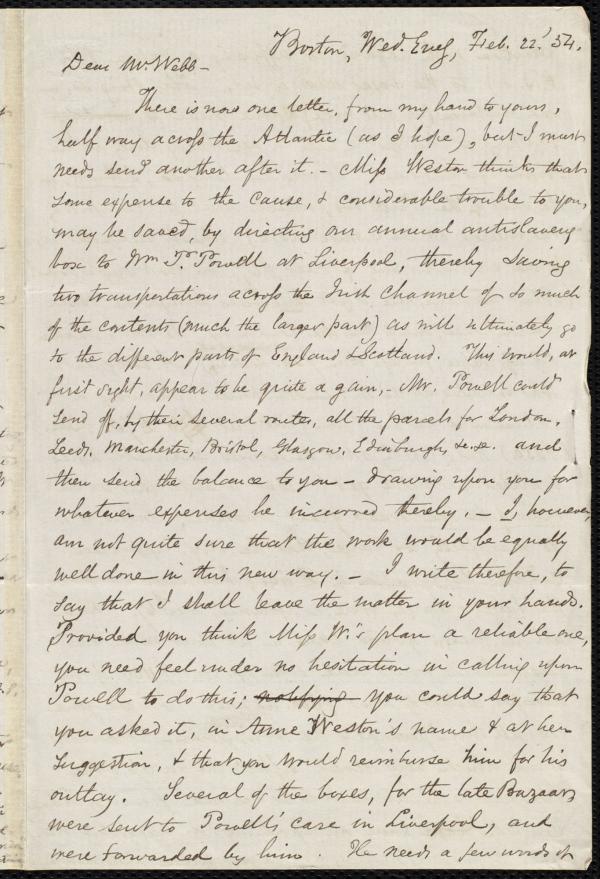 Boston, Wed. Eveg, Feb. 22d 54.
Dear Mr. Webb-
There is now one letter, from my hand to yours,
half way across the Atlantic (as I hope), but I must
needs send another after it. - Miss Weston thinks that
some expense to the cause, & considerable trouble to you,
may be saved, by directing our annual antislavery
box to Wm. P. Powell at Liverpool, thereby saving
two transportations across the Irish Channel of so much
of the contents (much the larger part) as will ultimately go
to the different parts of England & Scotland. This would, at
first sight, appear to be quite a gain, - Mr. Powell could
send off, by their several routes, all the parcels for London,
Leeds, Manchester, Bristol, Glasgow, Edinburgh, &c. &c. and
then send the balance to you - drawing upon you for
whatever expenses he incurred thereby. - I, however,
am not quite sure that the work would be equally
well done in this new way. - I write therefore, to
say that I shall leave the matter in your hands.
Provided you think Miss W.'s plan a reliable one,
you need feel under no hesitation in calling upon
Powell to do this; notifying you could say that
you asked it, in Anne Weston's name & at her
suggestion, & that you would reimburse him for his
outlay. Several of the boxes, for the late Bazaar,
were sent to Powell's care in Liverpool, and
were forwarded by him. He needs a few words of